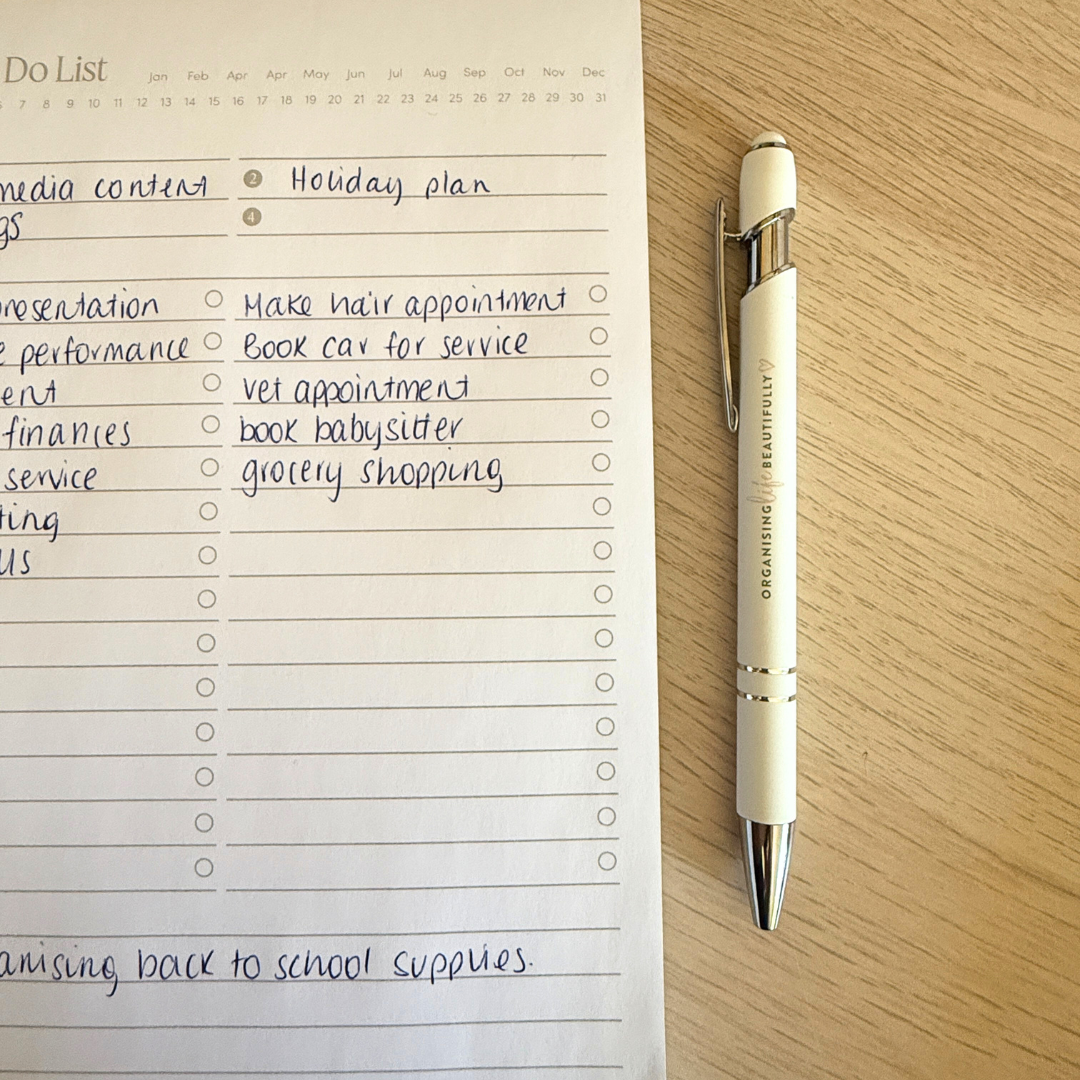 Do List
Jan Feb Apr Apr May Jun Jul Aug Sep Oct Nov Dec
7 8 9 10 11 12 13 14 15 16 17 18 19 20 21 22 23 24 25 26 27 28 29 30 31
media content
2 Holiday plan
gs
4
resentation
Make hair appointment
performance
Book car for service
ent
vet appointment
finances
book babysitter
service
grocery shopping
ting
us
anising back to school supplies.
ORGANISING life BEAUTIFULLY